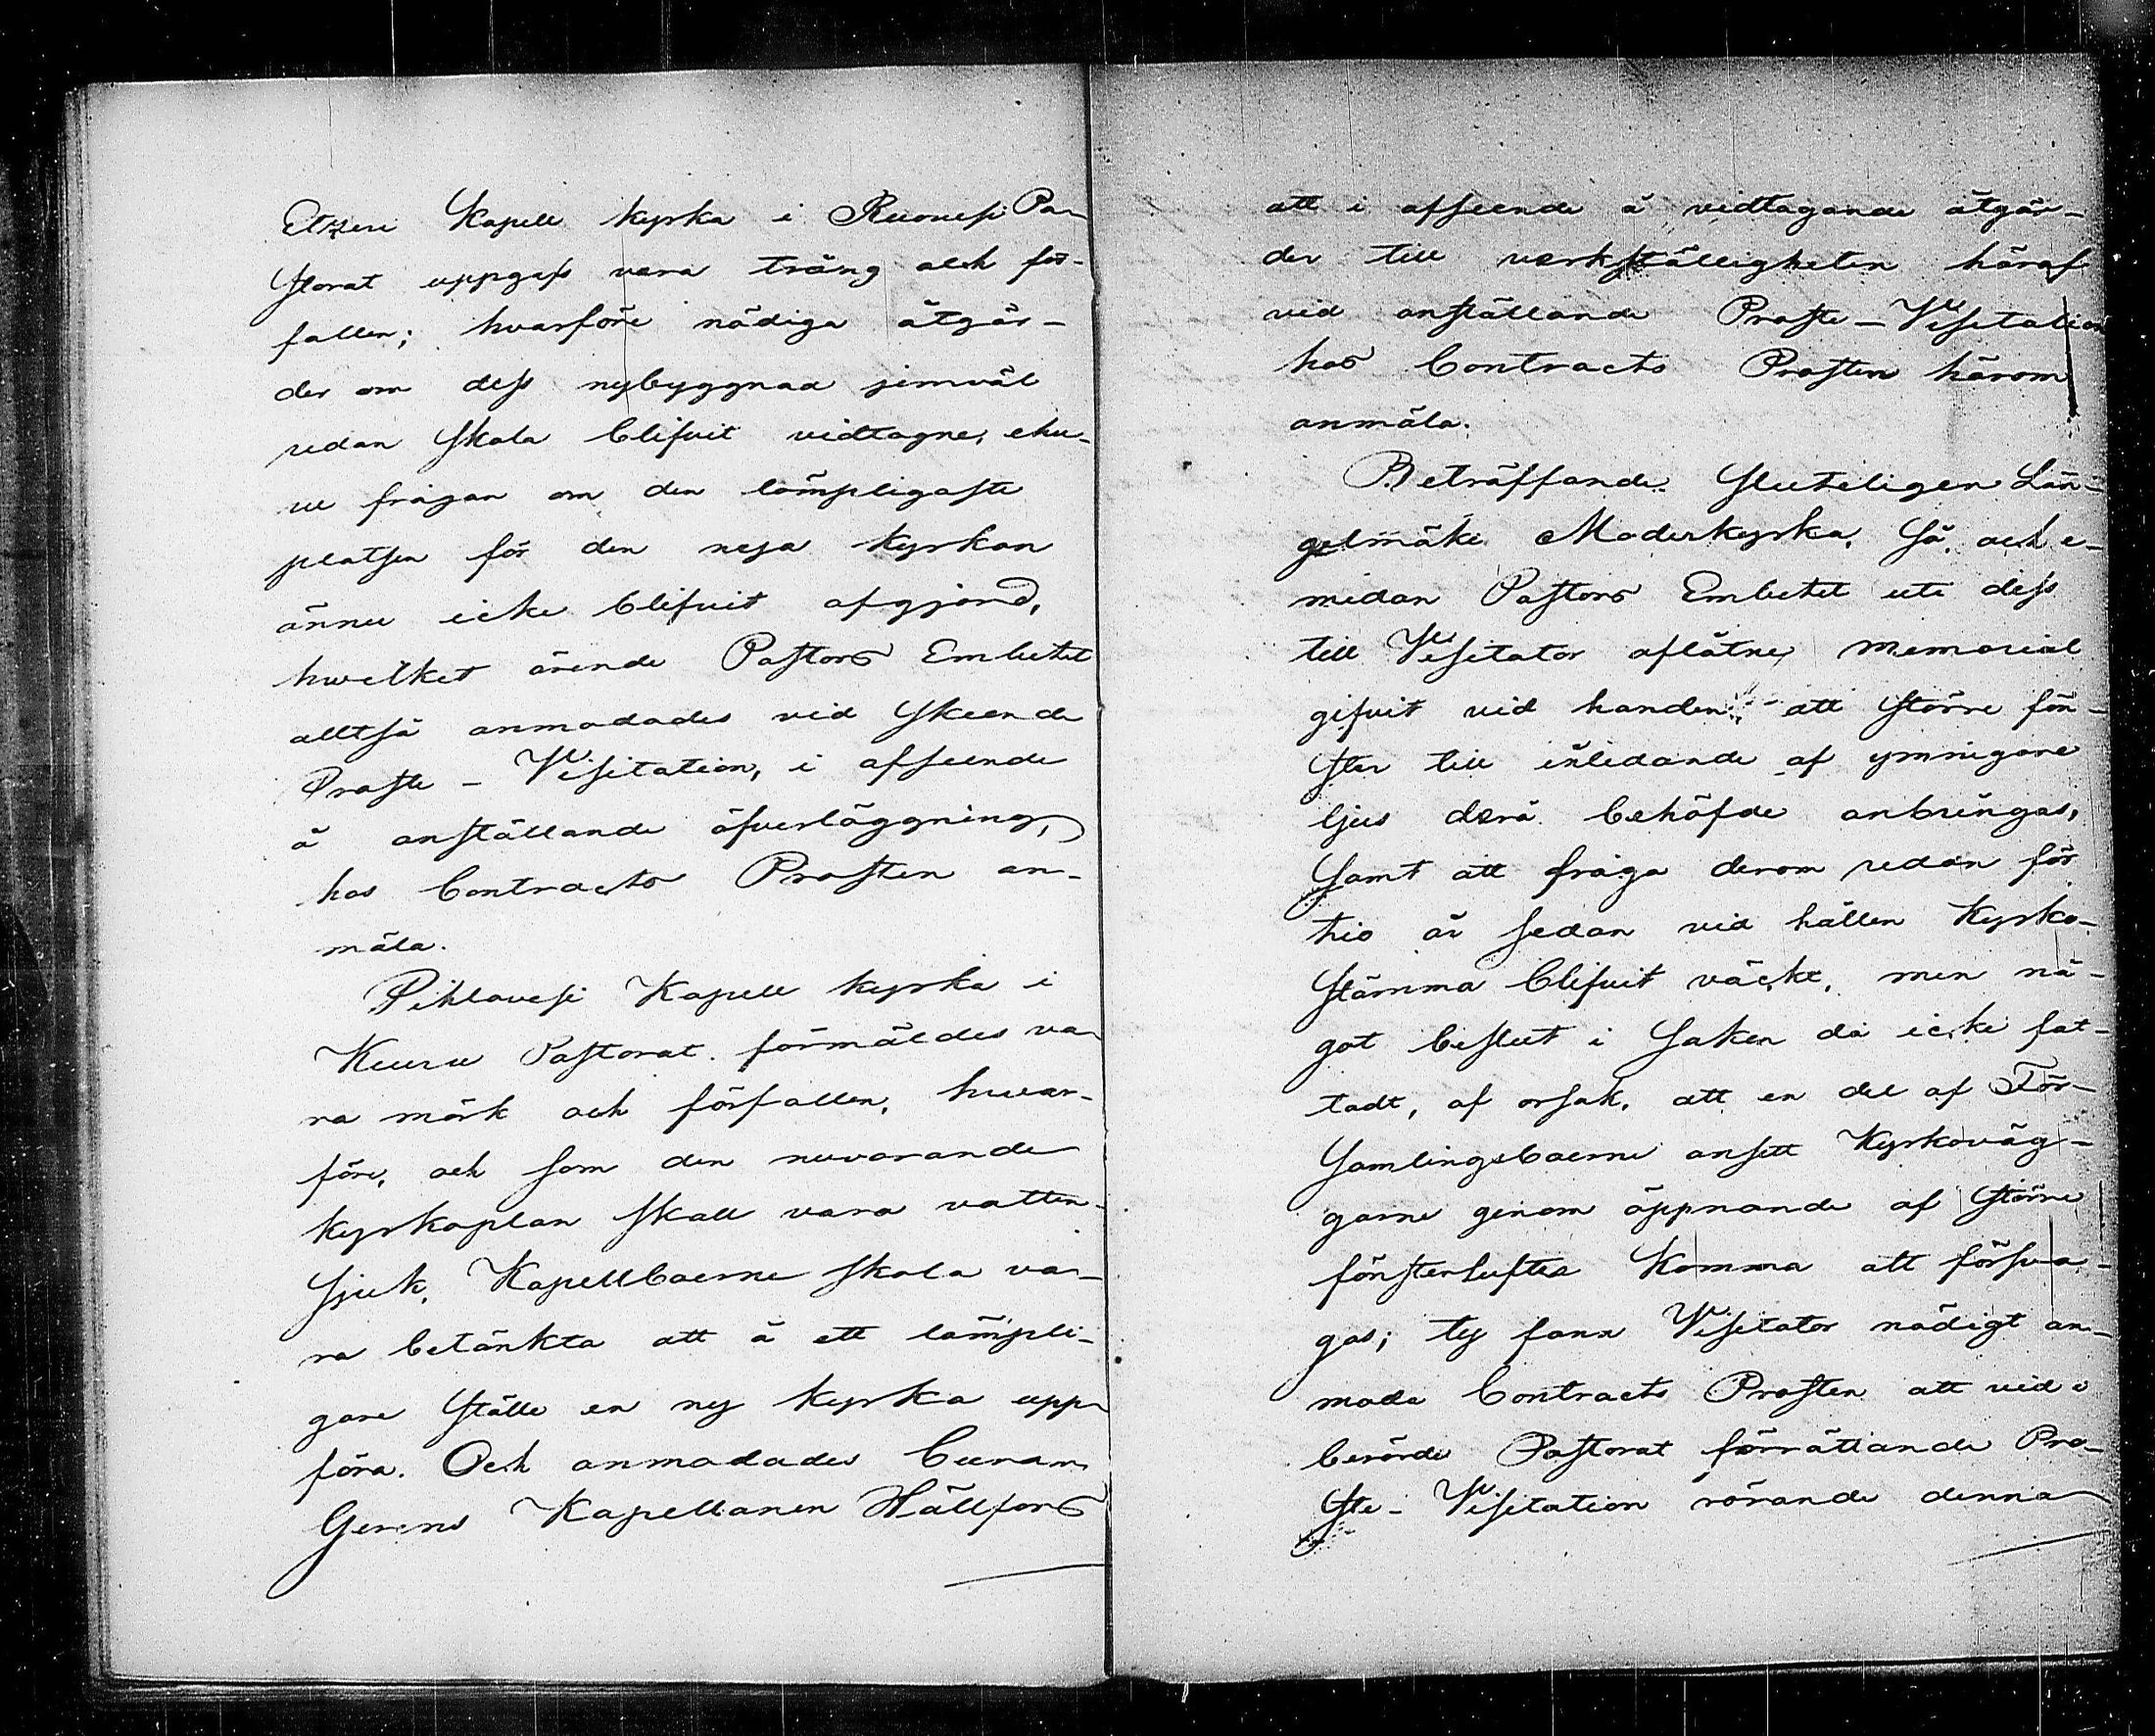 Etzeri Kapell kyrka i Ruovesi Pa-
storat uppgafs vara trång och för-
fallen; hvarföre nödiga åtgär-
der om dess nybyggnad jemväl
redan skola blifvit vidtagne, ehu-
ru frågan om den lämpligaste
platsen för den nya kyrkan
ännu icke blifvit afgjord,
hwilket ärende Pastors Embetet
alltså anmodades vid skeende
Proste-Visitation, i afseende
å anställande öfverläggning,
hos Contracts Prosten an-
mäla.
Pihlavesi Kapell kyrka i
Keuru Pastorat förmäldes va-
ra mörk och förfallen, hvar-
före, och som den nuvarande
kyrkoplan skall vara vatten-
sjuk, Kapellboerne skola va-
ra betänkta att å ett lämpli-
gare ställe en ny kyrka upp-
föra. Och anmodades Curam
Gerens Kapellanen Hällfors
att i afseende å vidtagande åtgär-
der till verkställigheten häraf
vid anställande Proste-Visitation
hos Contracts Prosten härom
anmäla.
Beträffande sluteligen Län-
gelmäki Moderkyrka, så, och e-
medan Pastors Embetet uti dess
till Visitator aflåtne memorial
gifvit vid handen, att större fön-
ster till inledande af ymnigare
ljus derå behöfde anbringas,
samt att fråga derom redan för
tio år sedan vid hållen Kyrko-
stämma blifvit väckt, men nå-
got beslut i saken då icke fat-
tadt, af orsak, att en del af För-
samlingsboerne ansett Kyrkoväg-
garne genom öppnande af större
fönsterlufter komma att försva-
gas; ty fann Visitator nödigt an-
moda Contracts Prosten att vid i
berörde Pastorat förrättande Pro-
ste-Visitation rörande denna